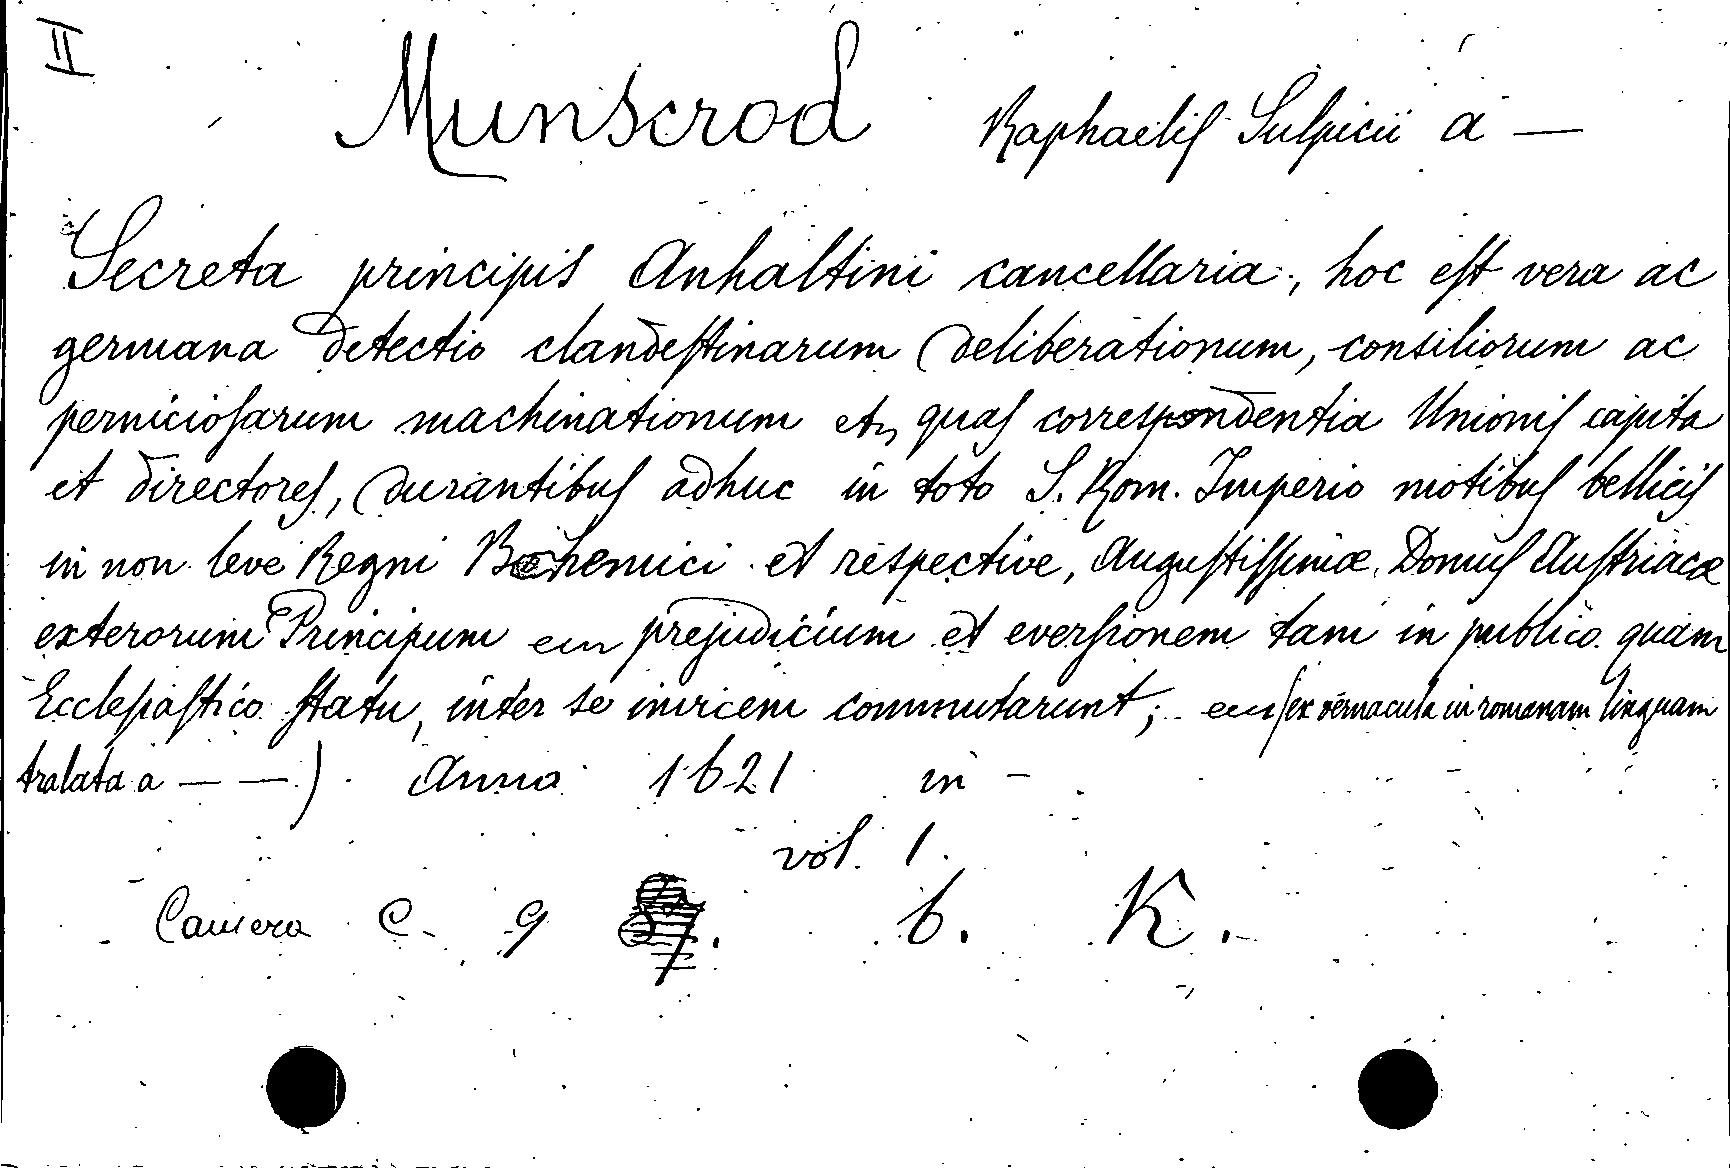 II
Munscrod Raphaelis Sulpicii à —
Secreta principis Anhaltini cancellaria, hoc est vera ac
germana detectio clandestinarum deliberationum, consiliorum ac
perniciosarum machinationum etc, quas correspondentia Unionis capita
et directores, durantibus adhuc in toto S. Rom. Imperio motibus bellicis
in non leve Regni Bohemici et respective, Augustissimæ Domus Austriacæ
exterorum Principum prejudicium et eversionem tam in publico quam
Ecclesiastico statu, inter se invicem commutarunt; (ex vernacula in romanam linguam
tralata a — —) Anno 1621 in –
vol. 1.
Camera C. 9 6. K.